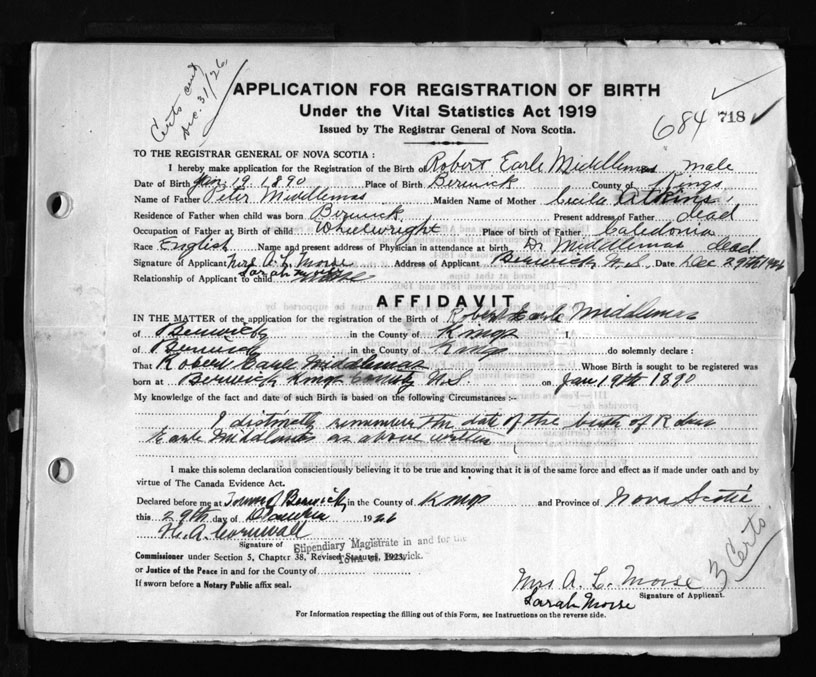 Certs sent
Dec. 31/26
APPLICATION FOR REGISTRATION OF BIRTH
Under the Vital Statistics Act 1919
Issued by The Registrar General of Nova Scotia.
684 718
TO THE REGISTRAR GENERAL OF NOVA SCOTIA :
I hereby make application for the Registration of the Birth of Robert Earle Middlemas male
Date of Birth Jan 19 1890 Place of Birth Berwick County of Kings
Name of Father Peter Middlemas Maiden Name of Mother Cecilia Atkins
Residence of Father when child was born Berwick Present address of Father dead
Occupation of Father at Birth of child Wheelwright Place of birth of Father Caledonia
Race English Name and present address of Physician in attendance at birth Dr Middlemas dead
Signature of Applicant Mrs A. L. Morse Address of Applicant Berwick N.S. Date Dec 29th 1926
Sarah Morse
Relationship of Applicant to child
AFFIDAVIT
IN THE MATTER of the application for the registration of the Birth of Robert Earle Middlemas
of Berwick in the County of Kings I.
of Berwick in the County of Kings do solemnly declare :
That Robert Earle Middlemas Whose Birth is sought to be registered was
born at Berwick Kings County N.S. on Jan 19th 1890
My knowledge of the fact and date of such Birth is based on the following Circumstances :-
I distinctly remember the date of the birth of Robert
Earle Middlemas as above written
I make this solemn declaration conscientiously believing it to be true and knowing that it is of the same force and effect as if made under oath and by
virtue of The Canada Evidence Act.
Declared before me at Town of Berwick in the County of Kings and Province of Nova Scotia
this 29th day of December 1926
H. A. Cornwall
Signature of Stipendiary Magistrate in and for the
Town of Berwick.
Commissioner under Section 5, Chapter 38, Revised Statutes, 1923,
or Justice of the Peace in and for the County of
If sworn before a Notary Public affix seal.
Mrs A. L. Morse
Signature of Applicant.
Sarah Morse
3 Certs.
For Information respecting the filling out of this Form, see Instructions on the reverse side.